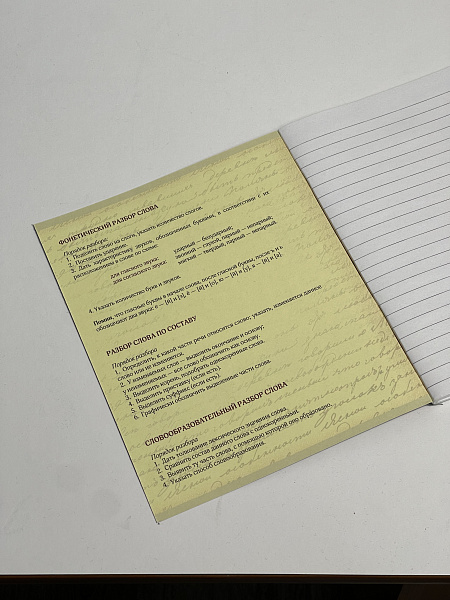 ФОНЕТИЧЕСКИЙ РАЗБОР СЛОВА
Порядок разбора:
1. Поделить слово на слоги, указать количество слогов.
2. Поставить ударение.
3. Дать характеристику звуков, обозначенных буквами, в соответствии с их
расположением в слове по схеме:
для гласного звука: ударный – безударный;
для согласного звука: звонкий – глухой, парный – непарный;
мягкий – твердый, парный – непарный.
4. Указать количество букв и звуков.
Помни, что гласные буквы в начале слова, после гласной буквы, после ъ и ь
обозначают два звука: е – [й] и [э], ё – [й] и [о], ю – [й] и [у], я – [й] и [а].
РАЗБОР СЛОВА ПО СОСТАВУ
Порядок разбора
1. Определить, к какой части речи относится слово; указать, изменяется данное
слово или не изменяется.
2. У изменяемых слов – выделить окончание и основу;
у неизменяемых – все слово обозначить как основу.
3. Выделить корень, подобрать однокоренные слова.
4. Выделить приставку (если есть).
5. Выделить суффикс (если есть).
6. Графически обозначить выделенные части слова.
СЛОВООБРАЗОВАТЕЛЬНЫЙ РАЗБОР СЛОВА
Порядок разбора
1. Дать толкование лексического значения слова.
2. Сравнить состав данного слова с однокоренными.
3. Выявить ту часть слова, с помощью которой оно образовано.
4. Указать способ словообразования.